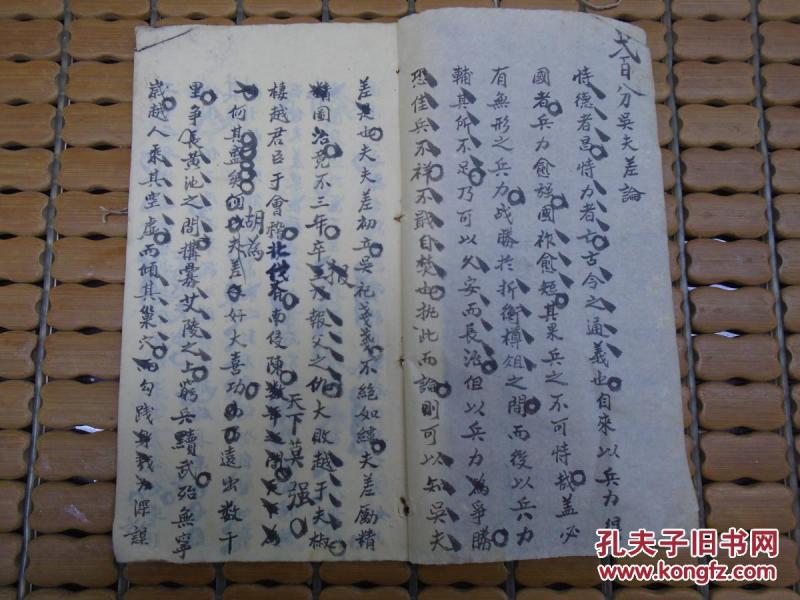 弍百分吳夫差論
恃德者昌恃力者亡古今之通義也自來以兵力得
國者兵力愈强國祚愈短其果兵之不可恃哉盖必
有無形之兵力战勝於折衝樽俎之間而後以兵力
輔其所不足乃可以久安而長治但以兵力為爭勝
恐佳兵不祥不戢自焚也挑此而論則可以知吳夫
差是也夫夫差初立吳祀不絕如縷夫差勵精
精圖治竟不三年卒報父之仇大敗越于夫椒
棲越君臣于會稽北伐南侵陳天下莫强
何其盛胡為好大喜功遠出数千
里爭長黃池之間搆釁艾陵之上窮兵黷武殆無寧
歲越人乘其空虛而傾其巢穴而勾践深謀
孔夫子旧书网
www.kongfz.com